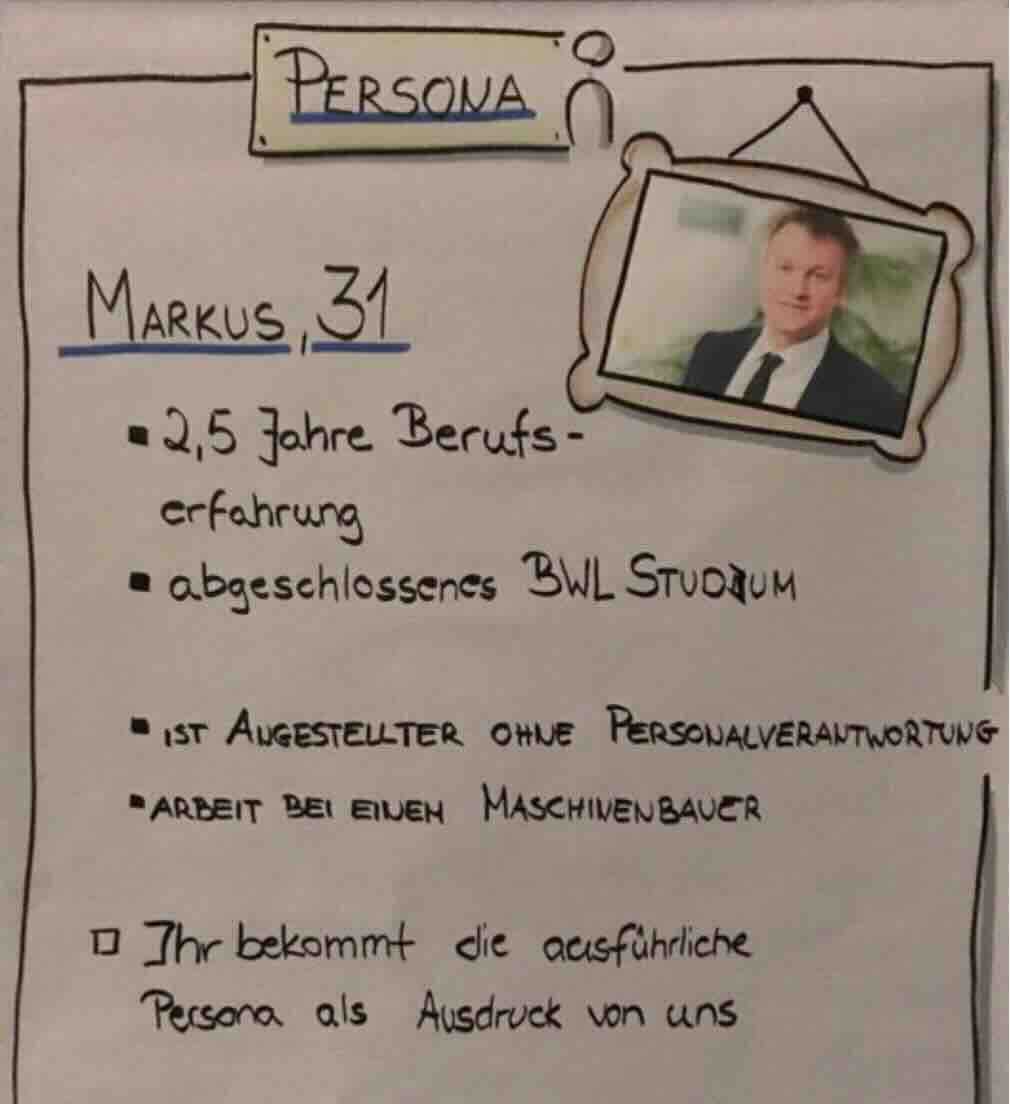 PERSONA
MARKUS, 31
▪ 2,5 Jahre Berufs-
erfahrung
▪ abgeschlossenes BWL STUDIUM
▪ IST ANGESTELLTER OHNE PERSONALVERANTWORTUNG
▪ ARBEIT BEI EINEM MASCHINENBAUER
□ Ihr bekommt die ausführliche
Persona als Ausdruck von uns